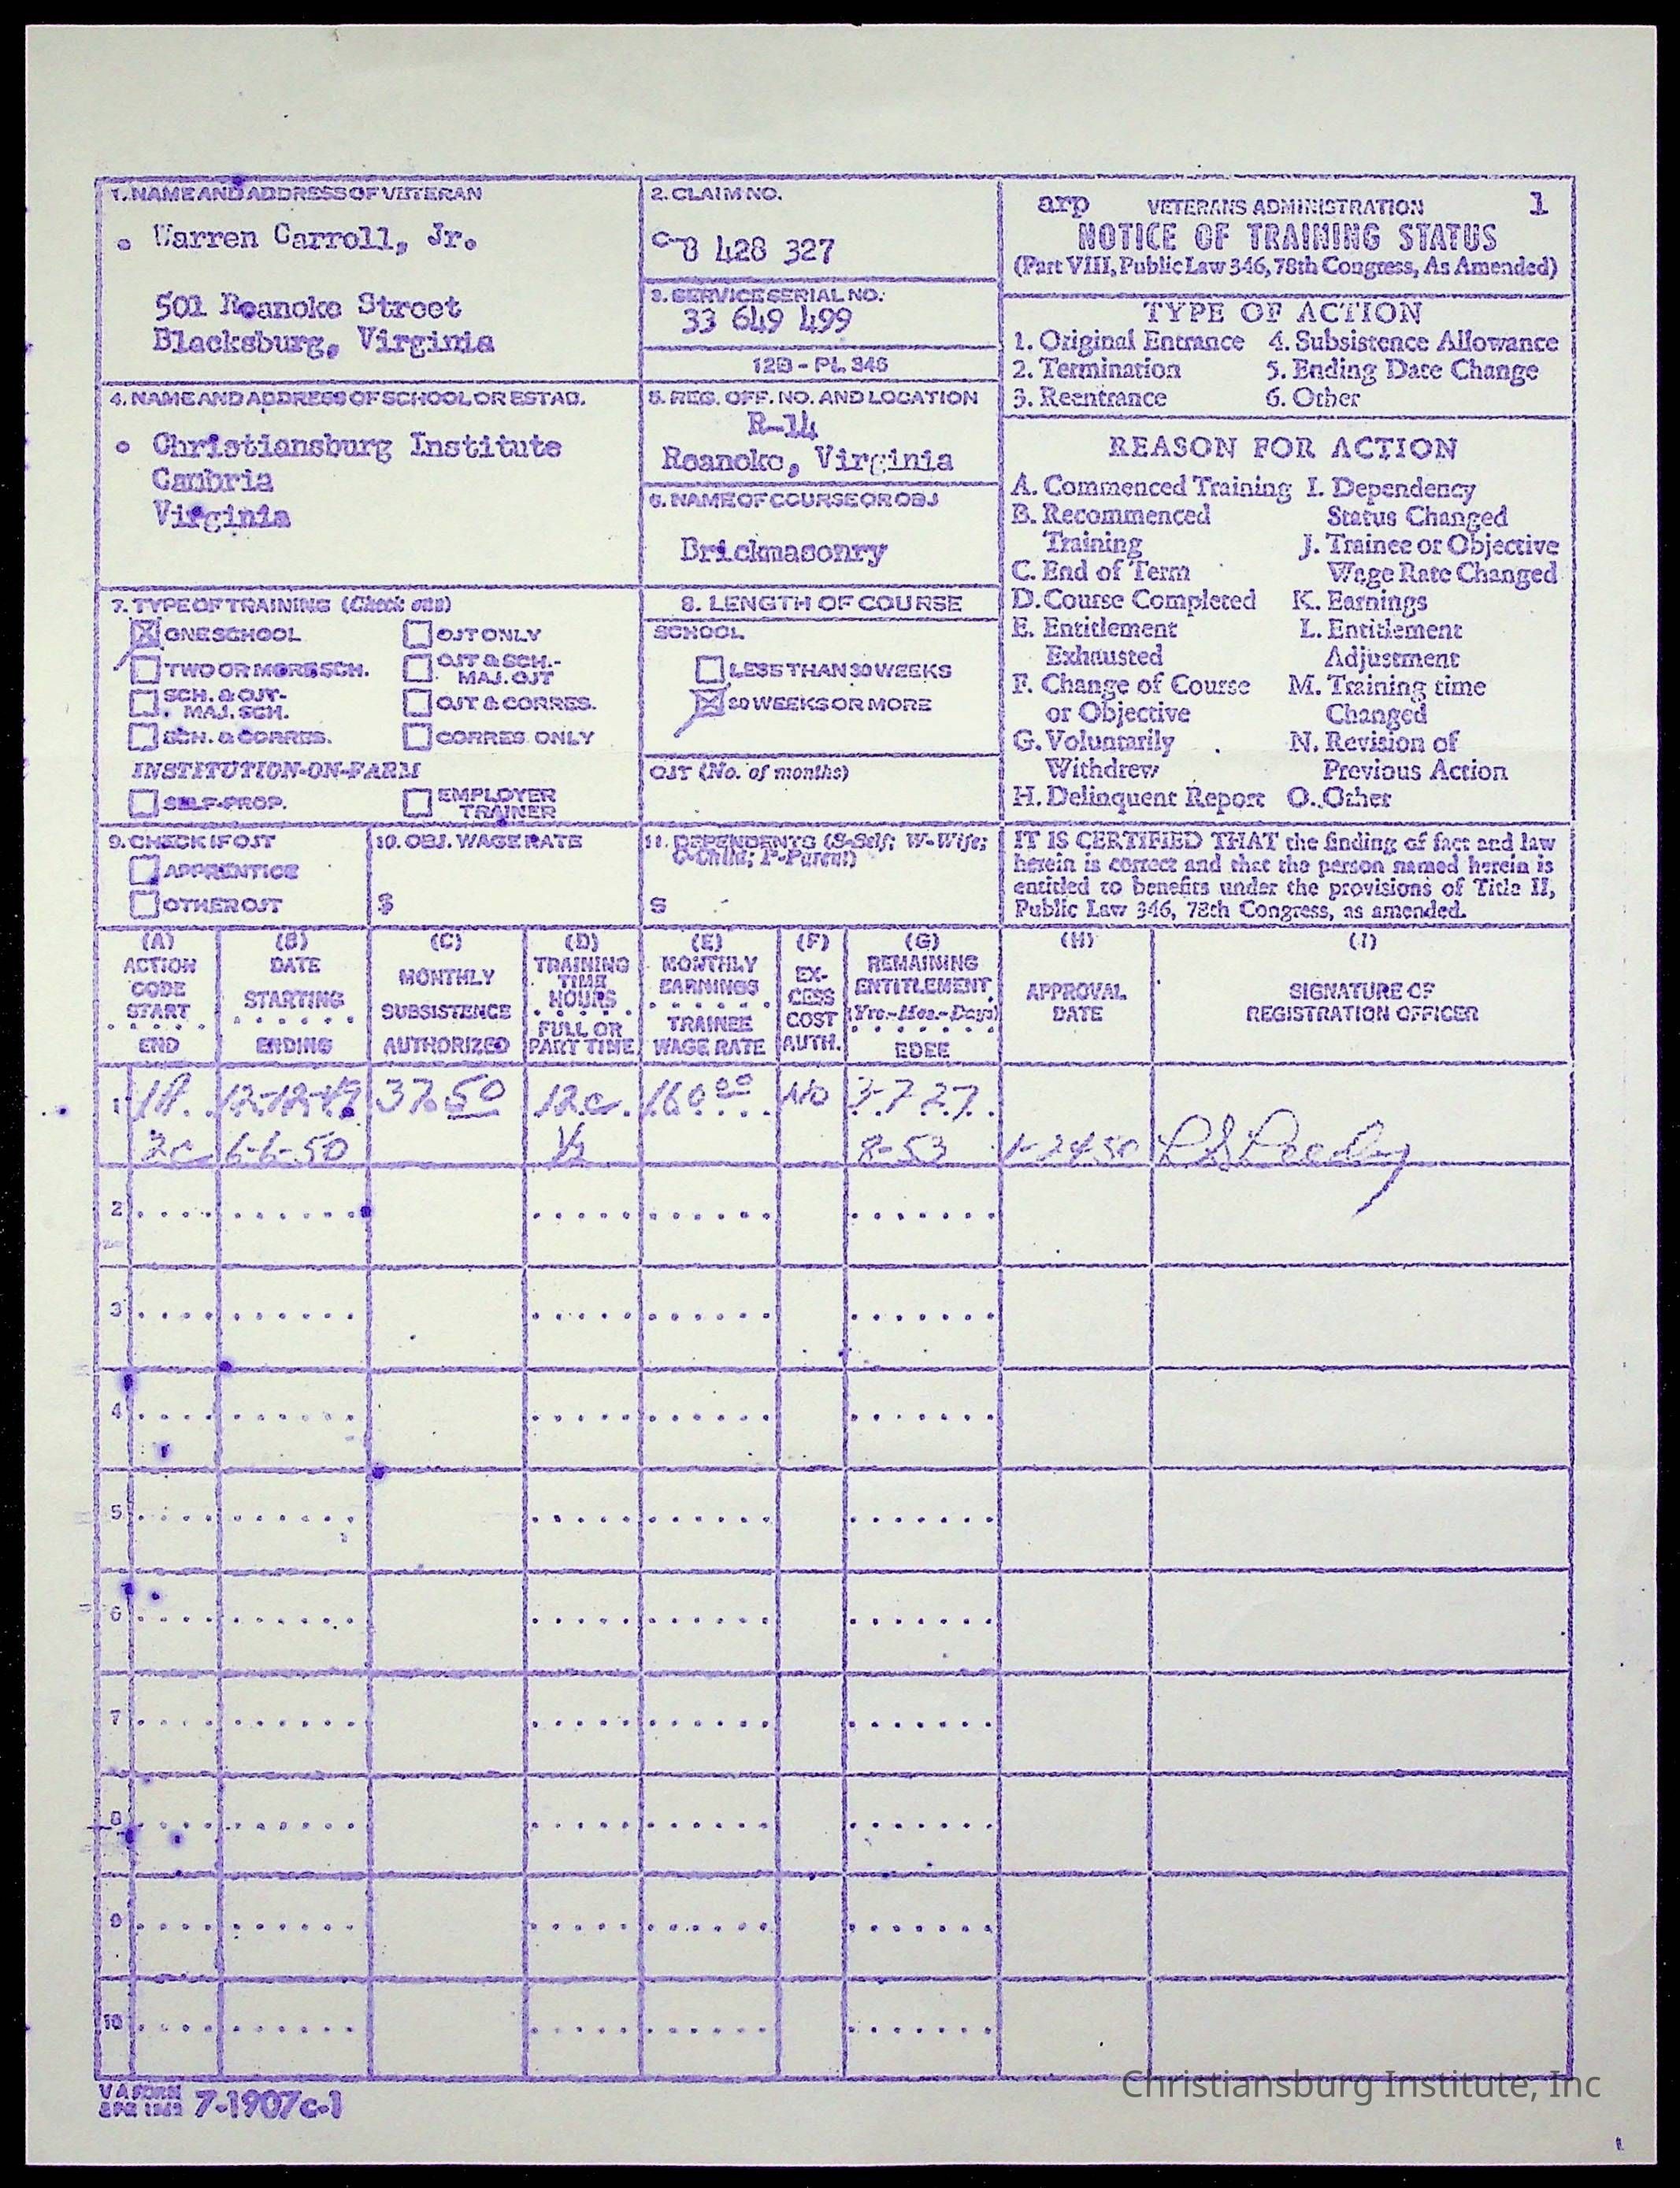 1. NAME AND ADDRESS OF VETERAN
Warren Carroll, Jr.
501 Roanoke Street
Blacksburg, Virginia
2. CLAIM NO.
C-8 428 327
3. SERVICE SERIAL NO.
33 649 499
12B - PL 346
arp VETERANS ADMINISTRATION 1
NOTICE OF TRAINING STATUS
(Part VIII, Public Law 346, 78th Congress, As Amended)
TYPE OF ACTION
1. Original Entrance 4. Subsistence Allowance
2. Termination 5. Ending Date Change
3. Reentrance 6. Other
4. NAME AND ADDRESS OF SCHOOL OR ESTAB.
Christiansburg Institute
Cambria
Virginia
5. REG. OFF. NO. AND LOCATION
R-14
Roanoke, Virginia
6. NAME OF COURSE OR OBJ
Brickmasonry
REASON FOR ACTION
A. Commenced Training I. Dependency
B. Recommenced Status Changed
Training J. Trainee or Objective
C. End of Term Wage Rate Changed
D. Course Completed K. Earnings
E. Entitlement L. Entitlement
Exhausted Adjustment
F. Change of Course M. Training time
or Objective Changed
G. Voluntarily N. Revision of
Withdrew Previous Action
H. Delinquent Report O. Other
7. TYPE OF TRAINING (Check one)
ONE SCHOOL OJT ONLY
TWO OR MORE SCH. OJT & SCH.-
MAJ. OJT
SCH. & OJT-
MAJ. SCH. OJT & CORRES.
SCH. & CORRES. CORRES. ONLY
INSTITUTION-ON-FARM
SELF-PROP. EMPLOYER
TRAINER
8. LENGTH OF COURSE
SCHOOL
LESS THAN 30 WEEKS
30 WEEKS OR MORE
OJT (No. of months)
9. CHECK IF OJT
APPRENTICE
OTHER OJT
10. OBJ. WAGE RATE
$
11. DEPENDENTS (S-Self; W-Wife;
C-Child; P-Parent)
S
IT IS CERTIFIED THAT the finding of fact and law
herein is correct and that the person named herein is
entitled to benefits under the provisions of Title II,
Public Law 346, 78th Congress, as amended.
(A) (B) (C) (D) (E) (F) (G) (H) (I)
ACTION
CODE
START
END
DATE
STARTING
ENDING
MONTHLY
SUBSISTENCE
AUTHORIZED
TRAINING
TIME
HOURS
FULL OR
PART TIME
MONTHLY
EARNINGS
TRAINEE
WAGE RATE
EX-
CESS
COST
AUTH.
REMAINING
ENTITLEMENT
(Yrs.-Mos.-Days)
EDEE
APPROVAL
DATE
SIGNATURE OF
REGISTRATION OFFICER
1 1A 12-12-49 37.50 12c 160.00 No 3-7 27
2c 6-6-50 1/2 8-53 1-24-50
2
3
4
5
6
7
8
9
10
VA FORM
7-1907c-1
Christiansburg Institute, Inc